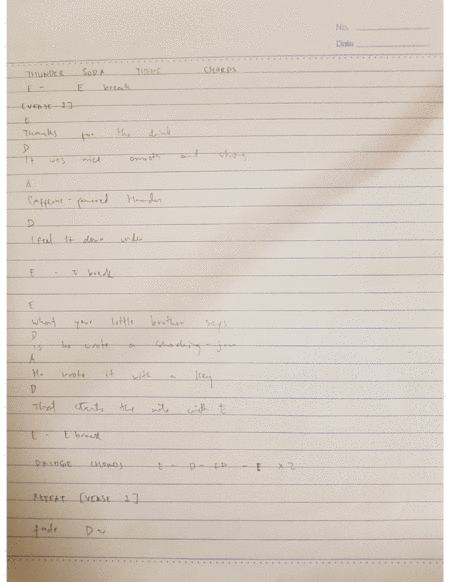 No.
Date
THUNDER SODA TIDINE CHORDS
E - E break
[VERSE 1]
E
Thanks for the drink
D
It was nice smooth and strong
A
Caffeine-powered thunder
D
I feel it down under
E - E break
E
What your little brother says
D
Is he wrote a
A
He wrote it with a key
D
That starts the note with E
E - E break
CHORDS E - D - - E x2
REPEAT [VERSE 1]
fade D~